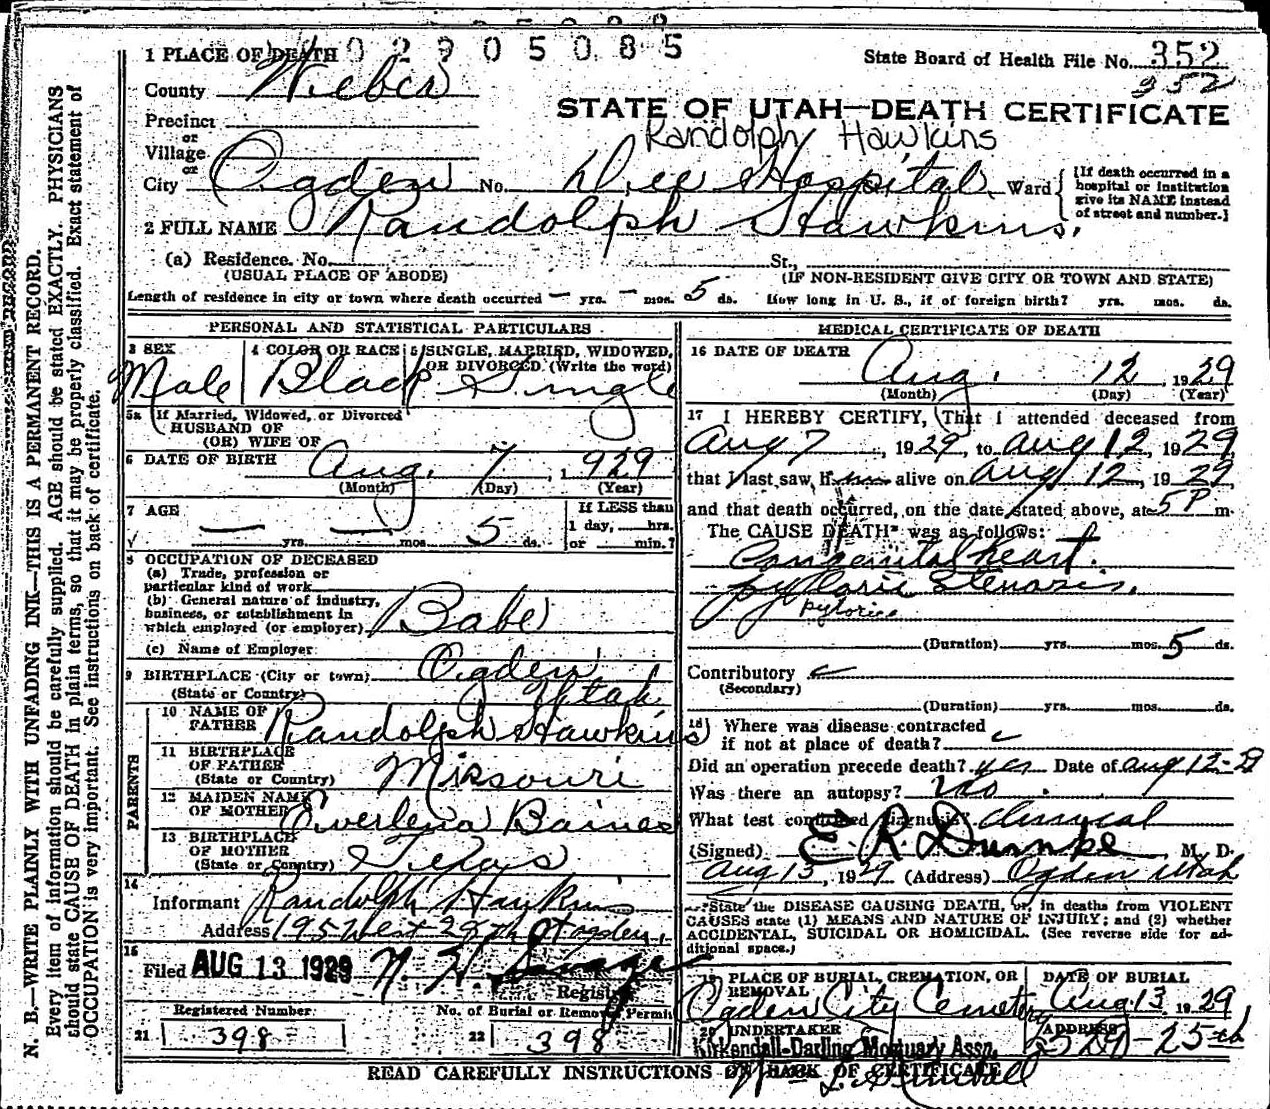 029 05085
1 PLACE OF DEATH
State Board of Health File No. 352
352
County Weber
STATE OF UTAH—DEATH CERTIFICATE
Precinct
or
Village
or
Randolph Hawkins
City Ogden No. Dee Hospital St., Ward
{If death occurred in a hospital or institution give its NAME instead of street and number.}
2 FULL NAME Randolph Hawkins.
(a) Residence. No. St.,
(USUAL PLACE OF ABODE) (IF NON-RESIDENT GIVE CITY OR TOWN AND STATE)
Length of residence in city or town where death occurred — yrs. — mos. 5 ds. How long in U. S., if of foreign birth? yrs. mos. ds.
PERSONAL AND STATISTICAL PARTICULARS
3 SEX Male
4 COLOR OR RACE Black
5 SINGLE, MARRIED, WIDOWED, OR DIVORCED. (Write the word) Single
5a If Married, Widowed, or Divorced
HUSBAND OF
(OR) WIFE OF
6 DATE OF BIRTH Aug. 7, 1929
(Month) (Day) (Year)
7 AGE — yrs. — mos. 5 ds.
If LESS than
1 day, hrs.
or min.?
8 OCCUPATION OF DECEASED
(a) Trade, profession or
particular kind of work
(b) General nature of industry,
business, or establishment in
which employed (or employer) Babe
(c) Name of Employer
9 BIRTHPLACE (City or town) Ogden
(State or Country) Utah
PARENTS
10 NAME OF
FATHER Randolph Hawkins
11 BIRTHPLACE
OF FATHER
(State or Country) Missouri
12 MAIDEN NAME
OF MOTHER Everlena Baines
13 BIRTHPLACE
OF MOTHER
(State or Country) Texas
14
Informant Randolph Hawkins
Address 195 West 28th St Ogden.
15
Filed AUG 13 1929
Registrar
Registered Number
21 398
No. of Burial or Removal Permit
22 398
MEDICAL CERTIFICATE OF DEATH
16 DATE OF DEATH Aug. 12, 1929
(Month) (Day) (Year)
17 I HEREBY CERTIFY, That I attended deceased from
Aug 7, 1929, to Aug 12, 1929
that I last saw him alive on Aug 12, 1929,
and that death occurred, on the date stated above, at 5 P m.
The CAUSE OF DEATH* was as follows:
Congenital heart.
pyloric Stenosis.
pyloric
(Duration) yrs. mos. 5 ds.
Contributory
(Secondary)
(Duration) yrs. mos. ds.
18 Where was disease contracted
if not at place of death?
Did an operation precede death? yes Date of Aug 12-29
Was there an autopsy? no
What test confirmed diagnosis? clinical
(Signed) E. R. Dumke M. D.
Aug 13, 1929 (Address) Ogden Utah
*State the DISEASE CAUSING DEATH, or, in deaths from VIOLENT
CAUSES state (1) MEANS AND NATURE OF INJURY; and (2) whether
ACCIDENTAL, SUICIDAL OR HOMICIDAL. (See reverse side for ad-
ditional space.)
19 PLACE OF BURIAL, CREMATION, OR
REMOVAL
Ogden City Cemetery
DATE OF BURIAL
Aug 13 1929
20 UNDERTAKER
Kirkendall-Darling Mortuary Assn.
ADDRESS
25th
READ CAREFULLY INSTRUCTIONS ON BACK OF CERTIFICATE
N. B.—WRITE PLAINLY WITH UNFADING INK—THIS IS A PERMANENT RECORD.
Every item of information should be carefully supplied. AGE should be stated EXACTLY. PHYSICIANS
should state CAUSE OF DEATH in plain terms, so that it may be properly classified. Exact statement of
OCCUPATION is very important. See instructions on back of certificate.